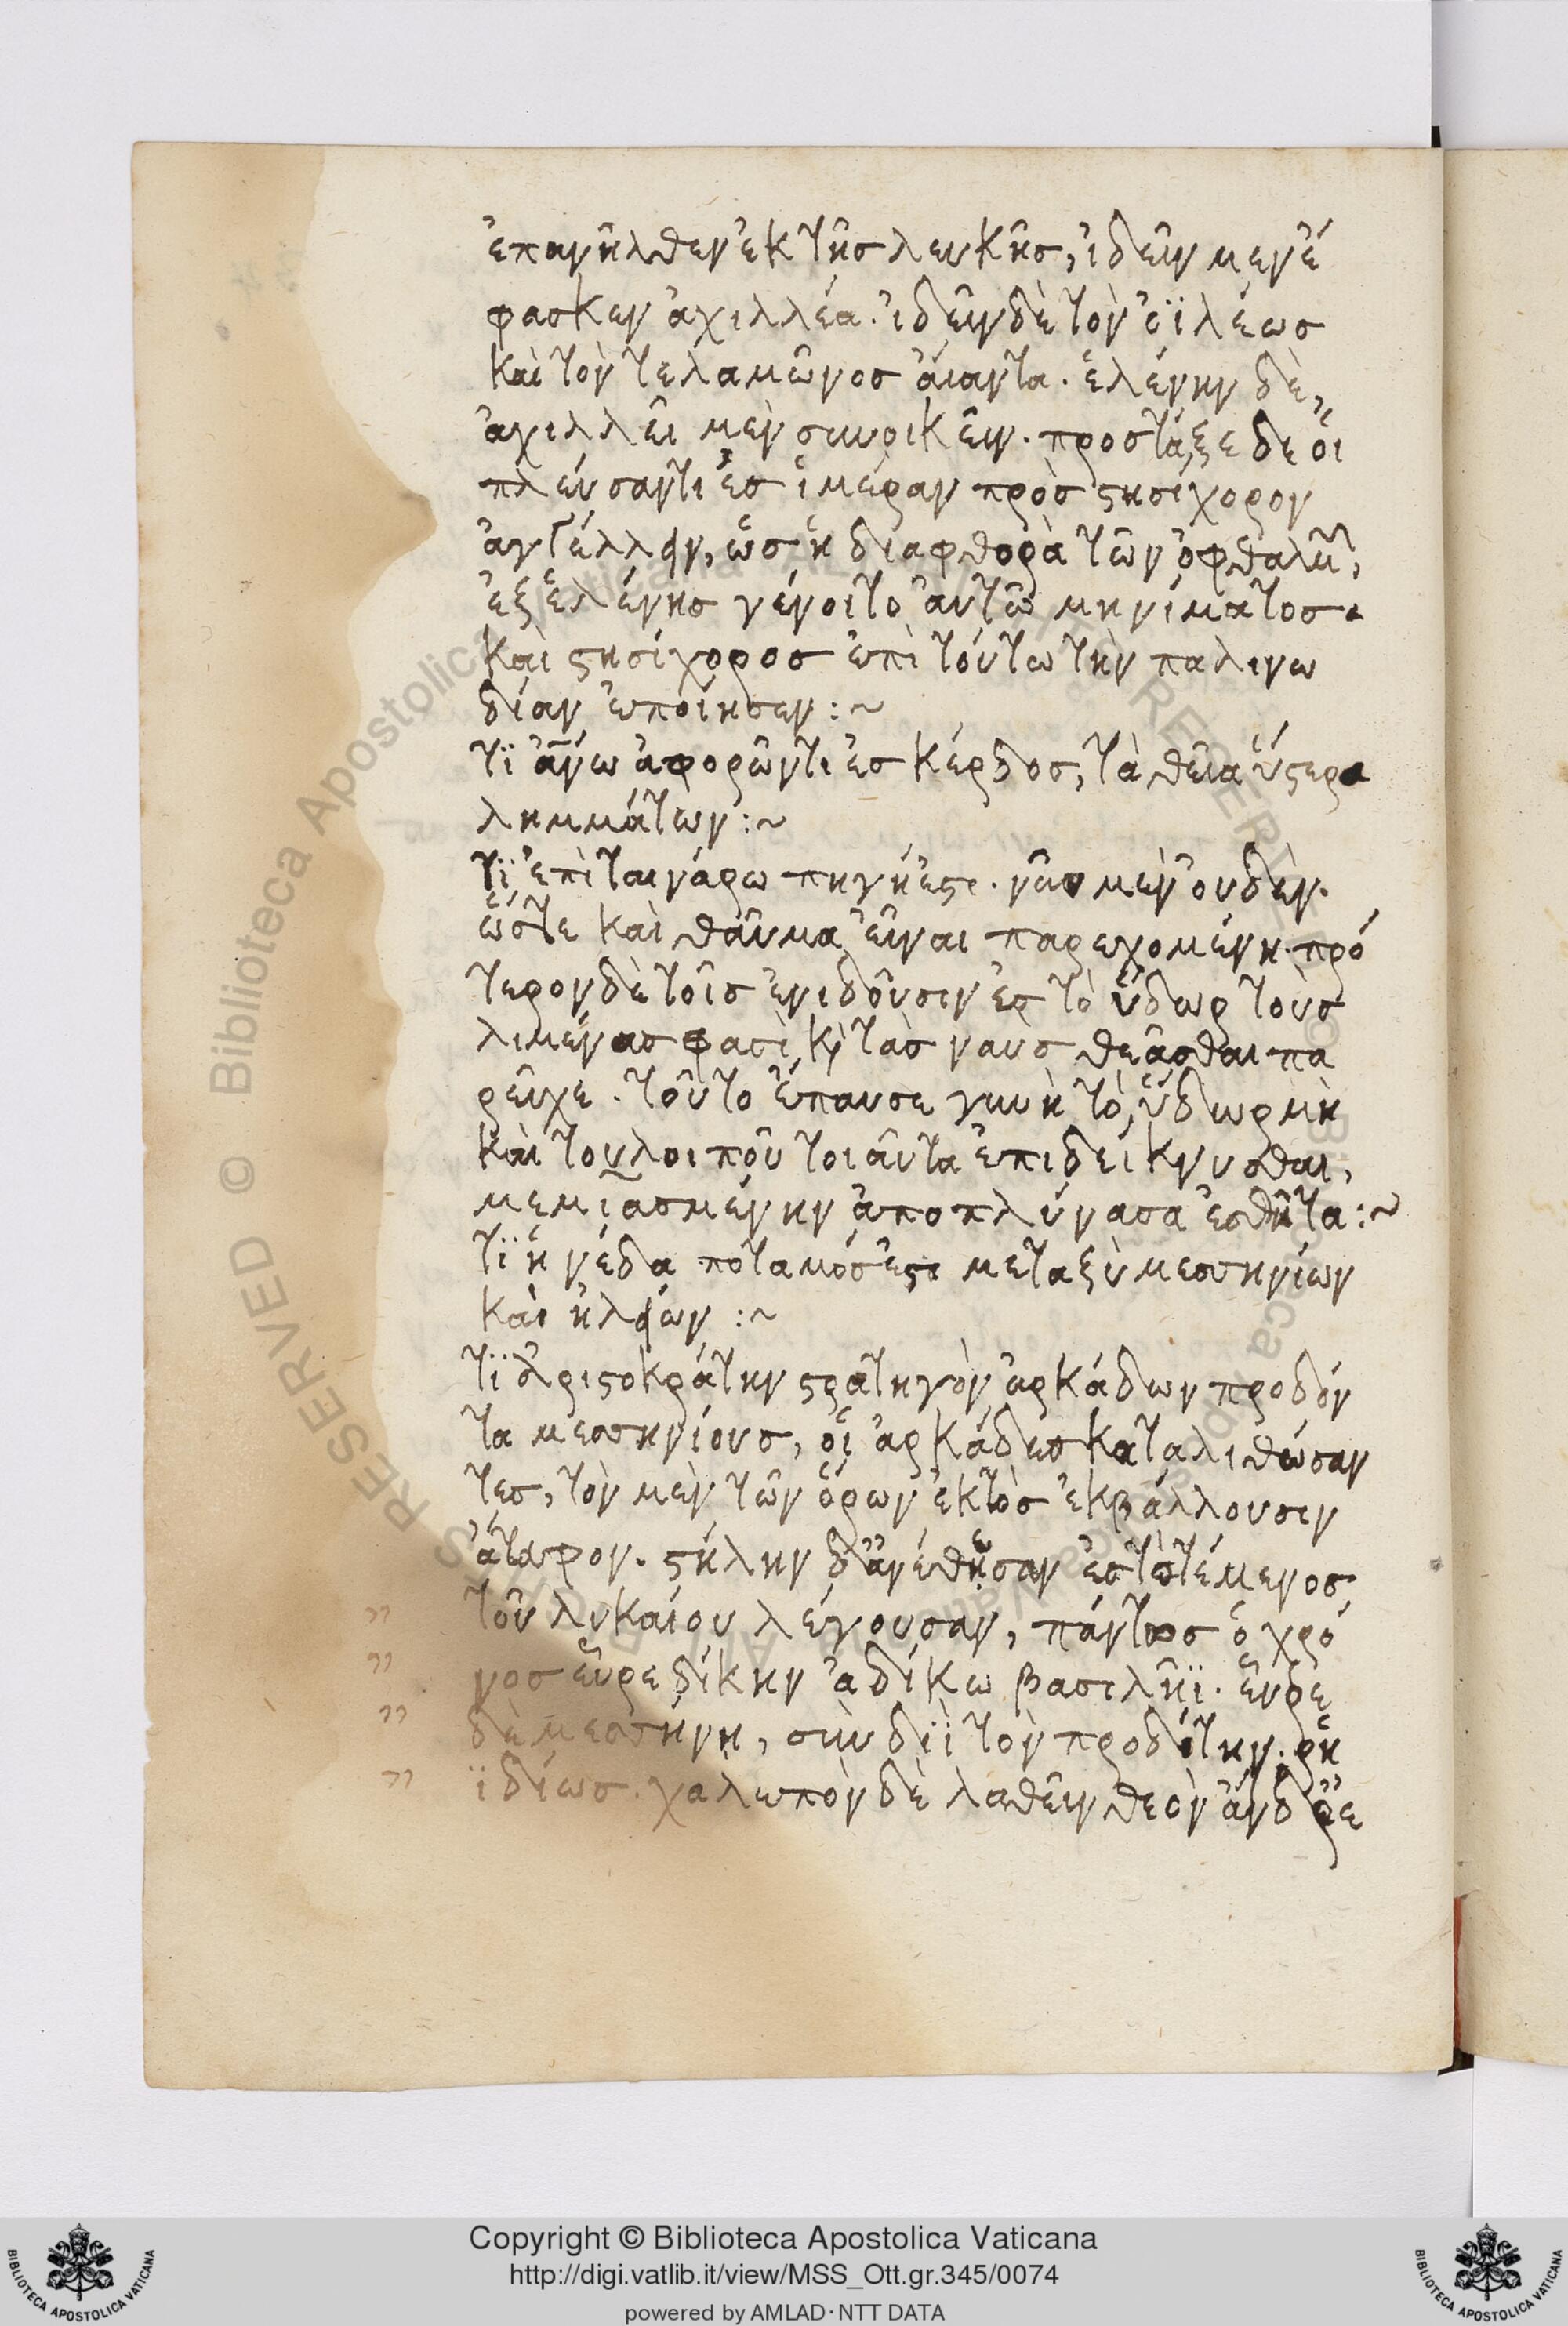 ἐπανῆλθεν ἐκ τῆς λευκῆς, ἰδεῖν μὲν ἔ
φασκεν ἀχιλλέα. ἰδεῖν δὲ τὸν ὀϊλέως
καὶ τὸν τελαμῶνος ἄιαντα. ἑλένην δὲ,
ἀχιλλεῖ μὲν συνοικεῖν. προστάξε δε οἱ
πλεύσαντι ἐσ ἱμέραν πρὸς στησίχορον
ἀγγέλλειν, ὡς ἡ διαφθορὰ τῶν ὀφθαλμ,
ἐξ ἑλένης γένοιτο ἀυτῶ μηνίματος.
καὶ στησίχορος ἐπὶ τούτω τὴν παλινω
δίαν ἐποίησεν :~
τϊ ἄνω ἀφορῶντι ἐσ κέρδος, τὰ θεῖα ὕστερα
λημμάτων :~
τϊ ἐπὶ ταινάρω πηγή ἐστι. νῦν μὲν ὀυδὲν.
ὥστε καὶ θαῦμα εἶναι παρεχομένη. πρό
τερον δὲ τοῖς ἐνιδοῦσιν ἐσ τὸ ὕδωρ τοὺς
λιμένας φασὶ κὶ τὰς ναῦς θεᾶσθαι πα
ρεῖχε. τοῦτο ἔπαυσε γυνὴ τὸ ὕδωρ μὴ
καὶ τουλοιποῦ τοιαῦτα ἐπιδείκνυσθαι,
μεμιασμένην ἀποπλύνασα ἐσθῆτα :~
τϊ ἡ νέδα ποταμός ἐστι μεταξὺ μεσσηνίων
καὶ ἠλείων :~
τϊ ἀριστοκράτην στρατηγὸν ἀρκάδων προδόν
τα μεσσηνίους, οἱ ἀρκάδες καταλιθώσαν
τες, τὸν μὲν τῶν ὅρων ἐκτὸς ἐκβάλλουσιν
ἄταφον. στήλην δ' ἀνέθησαν ἐσ τὸ τέμενος
τοῦ λυκαίου λέγουσαν, πάντως ὁ χρό
νος εὗρε δίκην ἀδίκω βασιλῆϊ. εὗρε
δὲ μεσσήνη, σὺν διῒ τὸν προδότην. ρη
ϊδίως. χαλεπὸν δὲ λαθεῖν θεὸν ἄνδρ ε
Copyright © Biblioteca Apostolica Vaticana
http://digi.vatlib.it/view/MSS_Ott.gr.345/0074
powered by AMLAD · NTT DATA